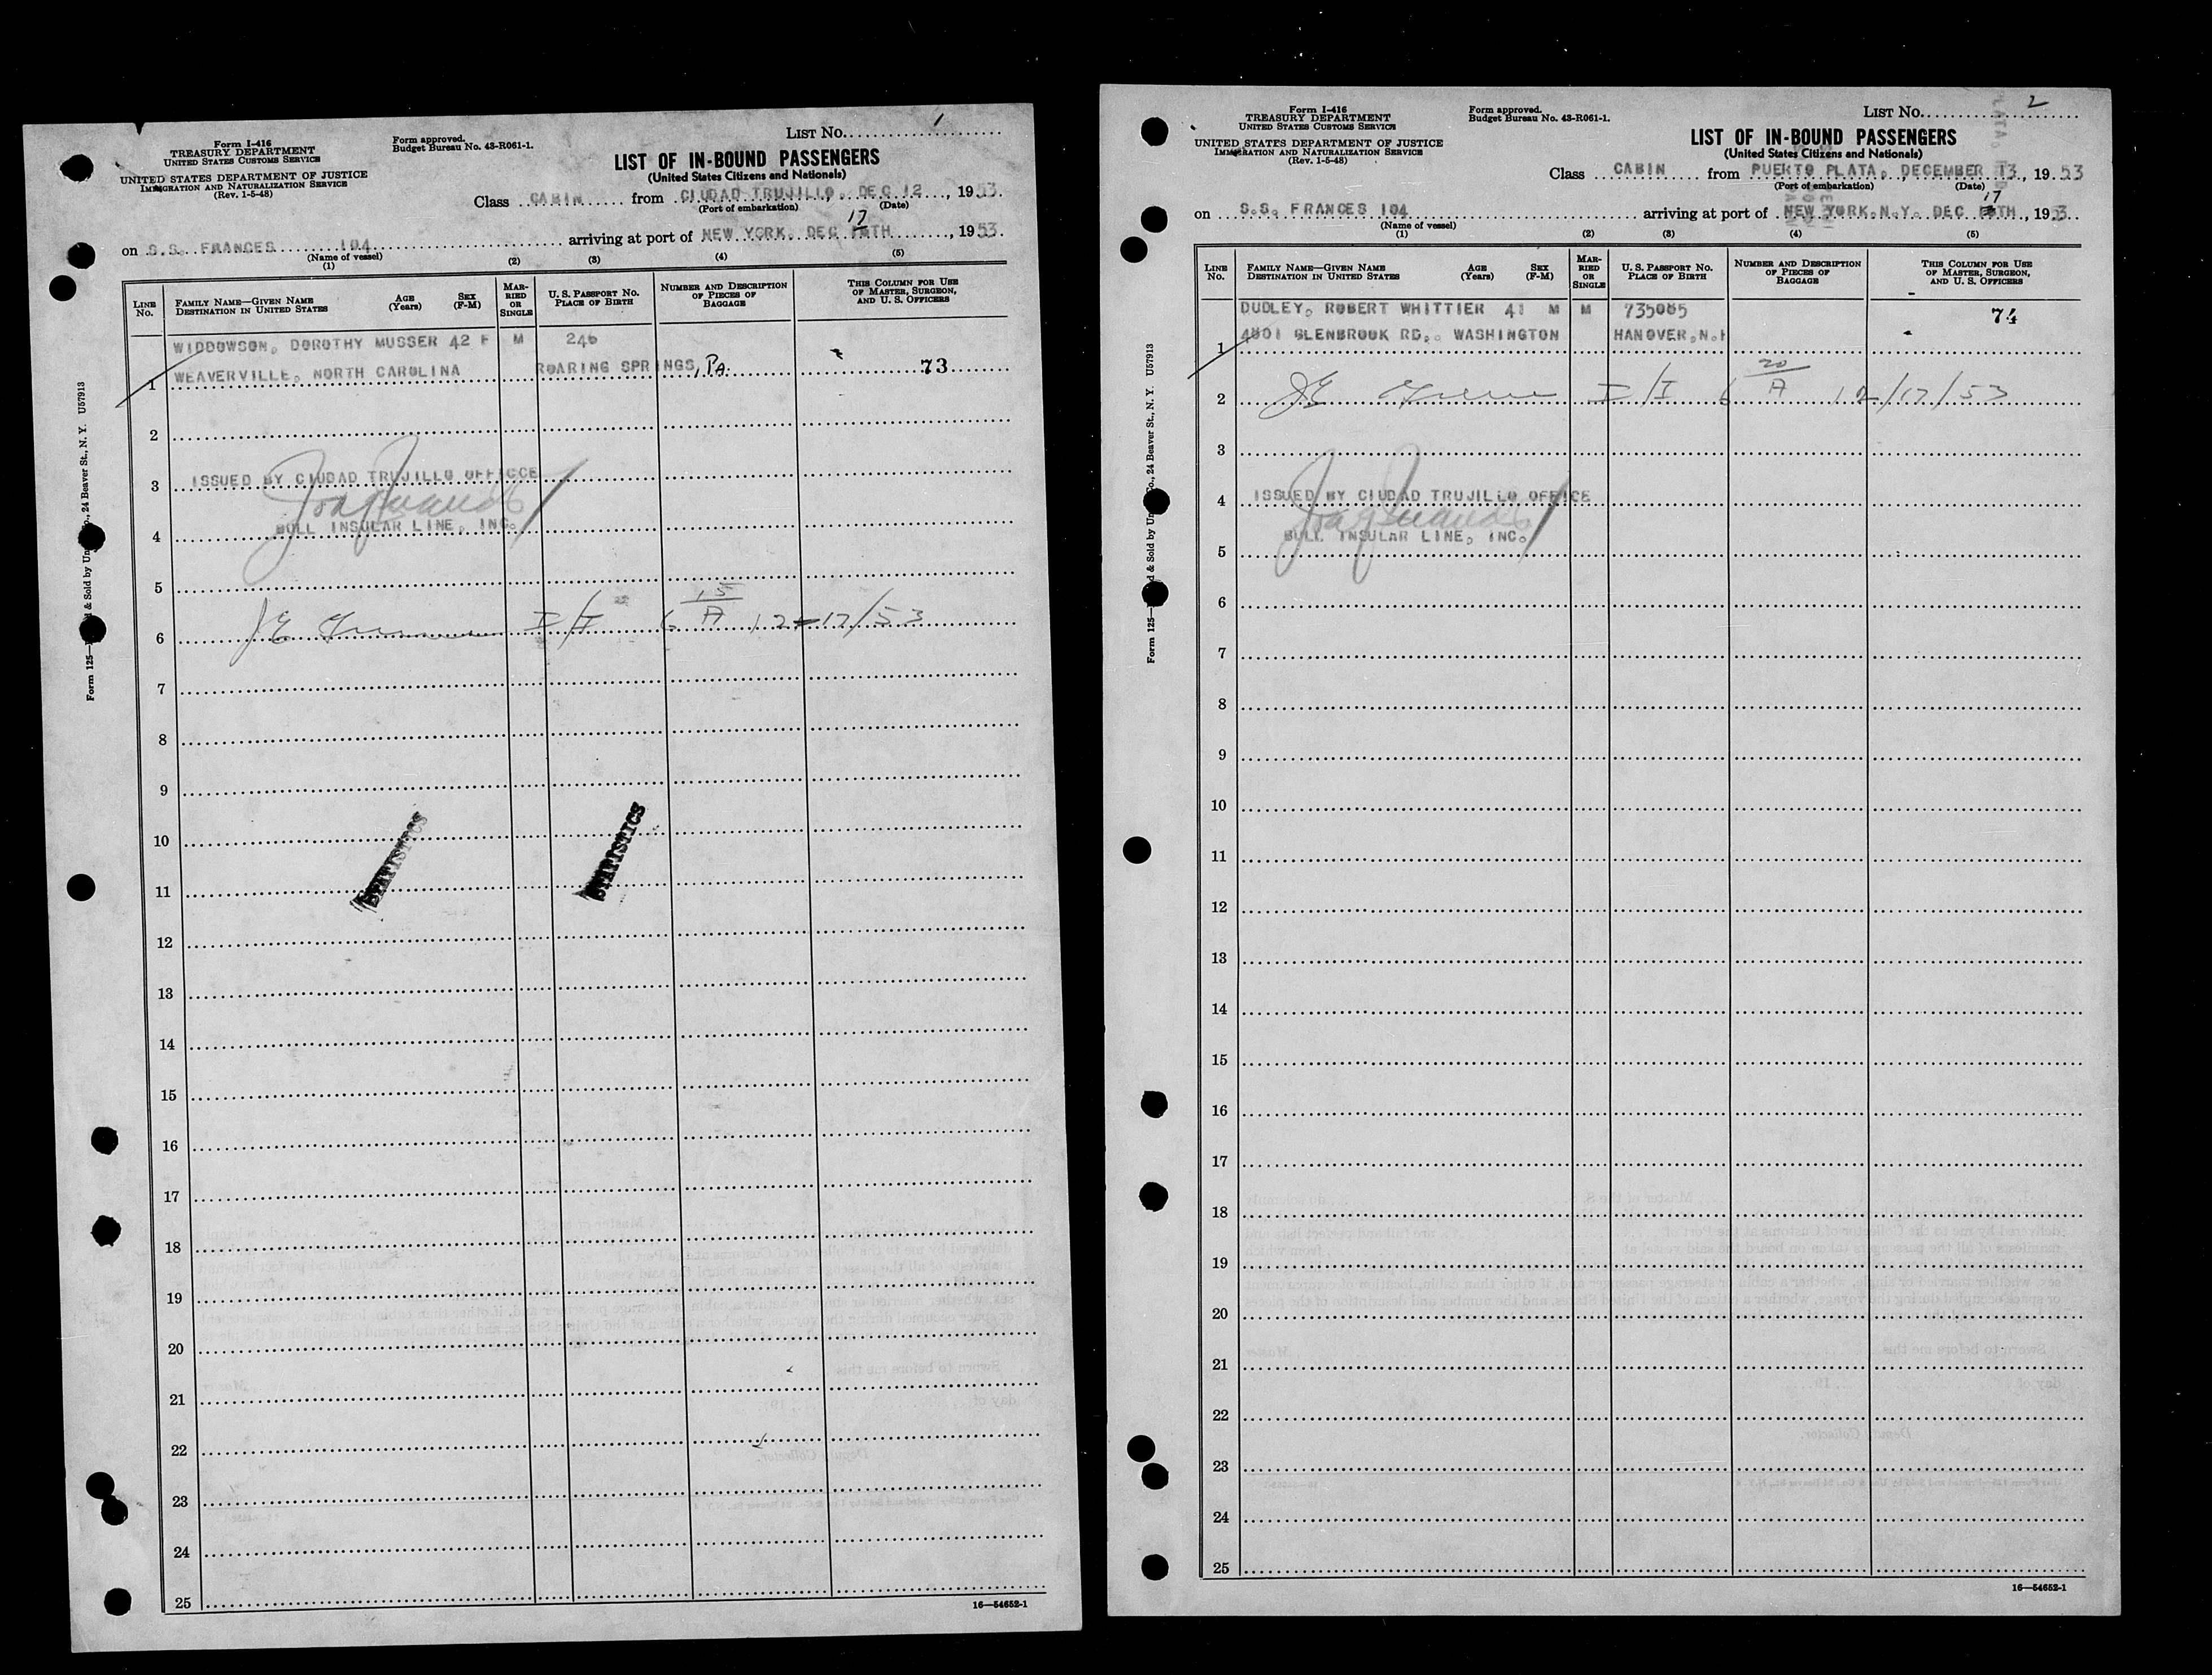 Form I-416
TREASURY DEPARTMENT
UNITED STATES CUSTOMS SERVICE
UNITED STATES DEPARTMENT OF JUSTICE
IMMIGRATION AND NATURALIZATION SERVICE
(Rev. 1-5-48)
Form approved.
Budget Bureau No. 43-R061-1.
LIST NO. 1
LIST OF IN-BOUND PASSENGERS
(United States Citizens and Nationals)
Class CABIN from CIUDAD TRUJILLO, DEC 12, 1953.
(Port of embarkation) (Date)
on S.S. FRANCES 104 arriving at port of NEW YORK, DEC 17 TH, 1953.
(Name of vessel)
(1) (2) (3) (4) (5)
LINE No. FAMILY NAME—GIVEN NAME DESTINATION IN UNITED STATES AGE (Years) SEX (F-M) MARRIED OR SINGLE U. S. PASSPORT NO. PLACE OF BIRTH NUMBER AND DESCRIPTION OF PIECES OF BAGGAGE THIS COLUMN FOR USE OF MASTER, SURGEON, AND U. S. OFFICERS
WIDDOWSON, DOROTHY MUSSER 42 F M 246
1 WEAVERVILLE, NORTH CAROLINA ROARING SPRINGS, PA. 73
2
3 ISSUED BY CIUDAD TRUJILLO OFFICCE
BULL INSULAR LINE, INC.
4
5
15
6 I/I 6 A 12-17/53
7
8
9
10
STATISTICS STATISTICS
11
12
13
14
15
16
17
18
19
20
21
22
23
24
25
16—54652-1
Form 125— & Sold by Un Co., 24 Beaver St., N. Y. U57913
Form I-416
TREASURY DEPARTMENT
UNITED STATES CUSTOMS SERVICE
UNITED STATES DEPARTMENT OF JUSTICE
IMMIGRATION AND NATURALIZATION SERVICE
(Rev. 1-5-48)
Form approved.
Budget Bureau No. 43-R061-1.
LIST NO. 2
LIST OF IN-BOUND PASSENGERS
(United States Citizens and Nationals)
Class CABIN from PUERTO PLATA, DECEMBER 13, 1953
(Port of embarkation) (Date)
on S.S. FRANCES 104 arriving at port of NEW YORK.N.Y. DEC 17 TH., 1953.
(Name of vessel)
(1) (2) (3) (4) (5)
LINE No. FAMILY NAME—GIVEN NAME DESTINATION IN UNITED STATES AGE (Years) SEX (F-M) MARRIED OR SINGLE U. S. PASSPORT NO. PLACE OF BIRTH NUMBER AND DESCRIPTION OF PIECES OF BAGGAGE THIS COLUMN FOR USE OF MASTER, SURGEON, AND U. S. OFFICERS
DUDLEY, ROBERT WHITTIER 41 M M 735085 74
1 4801 GLENBROOK RD,. WASHINGTON HANOVER,N.H
20
2 I/I 6 A 12/17/53
3
4 ISSUED BY CIUDAD TRUJILLO OFFICE
BULL INSULAR LINE, INC.
5
6
7
8
9
10
11
12
13
14
15
16
17
18
19
20
21
22
23
24
25
16—54652-1
Form 125— d & Sold by Un Co., 24 Beaver St., N. Y. U57913